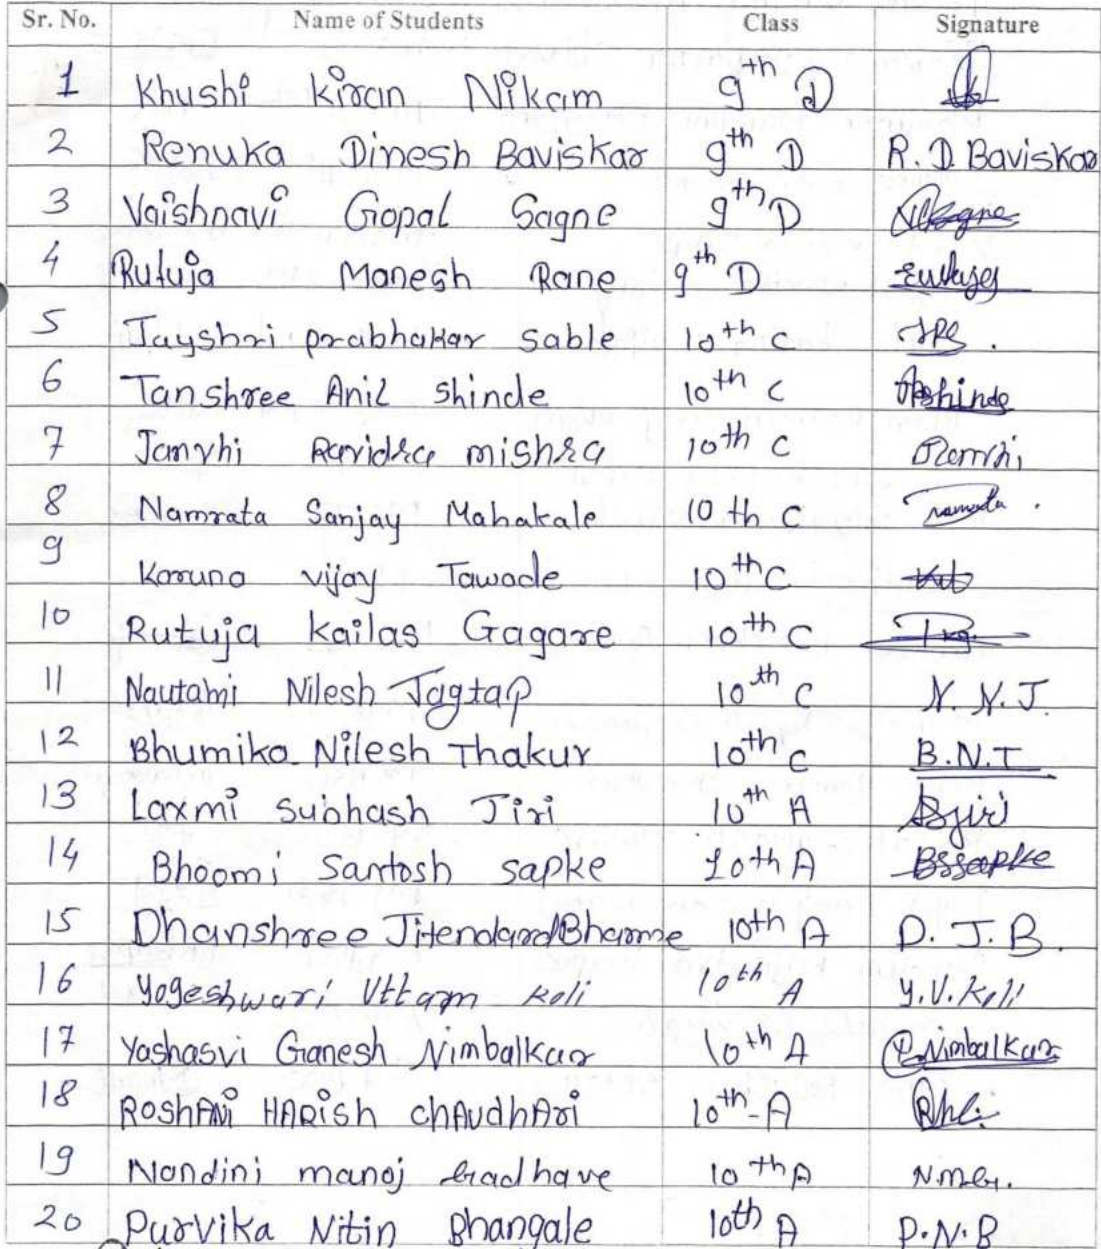 Sr. No. Name of Students Class Signature
1 Khushi Kiran Nikam 9th D
2 Renuka Dinesh Baviskar 9th D R. D. Baviskar
3 Vaishnavi Gopal Sagne 9th D
4 Rutuja Manesh Rane 9th D
5 Jayshri prabhakar sable 10th C JPS.
6 Tanshree Anil Shinde 10th C
7 Janvhi Ravidra mishra 10th C
8 Namrata Sanjay Mahakale 10th C Namrata.
9 Karuna vijay Tawade 10th C
10 Rutuja kailas Gagare 10th C
11 Nautami Nilesh Jagtap 10th C N. N. J.
12 Bhumika Nilesh Thakur 10th C B.N.T
13 Laxmi Subhash Jiri 10th A
14 Bhoomi Santosh sapke 10th A BSsapke
15 Dhanshree Jitendard Bharme 10th A D. J. B.
16 Yogeshwari Uttam Koli 10th A Y.V.Koli
17 Yashasvi Ganesh Nimbalkar 10th A Nimbalkar
18 ROSHANi HARish chAudhAri 10th-A
19 Nandini manoj Gadhave 10th A N.M.G.
20 Purvika Nitin Bhangale 10th A P.N.B